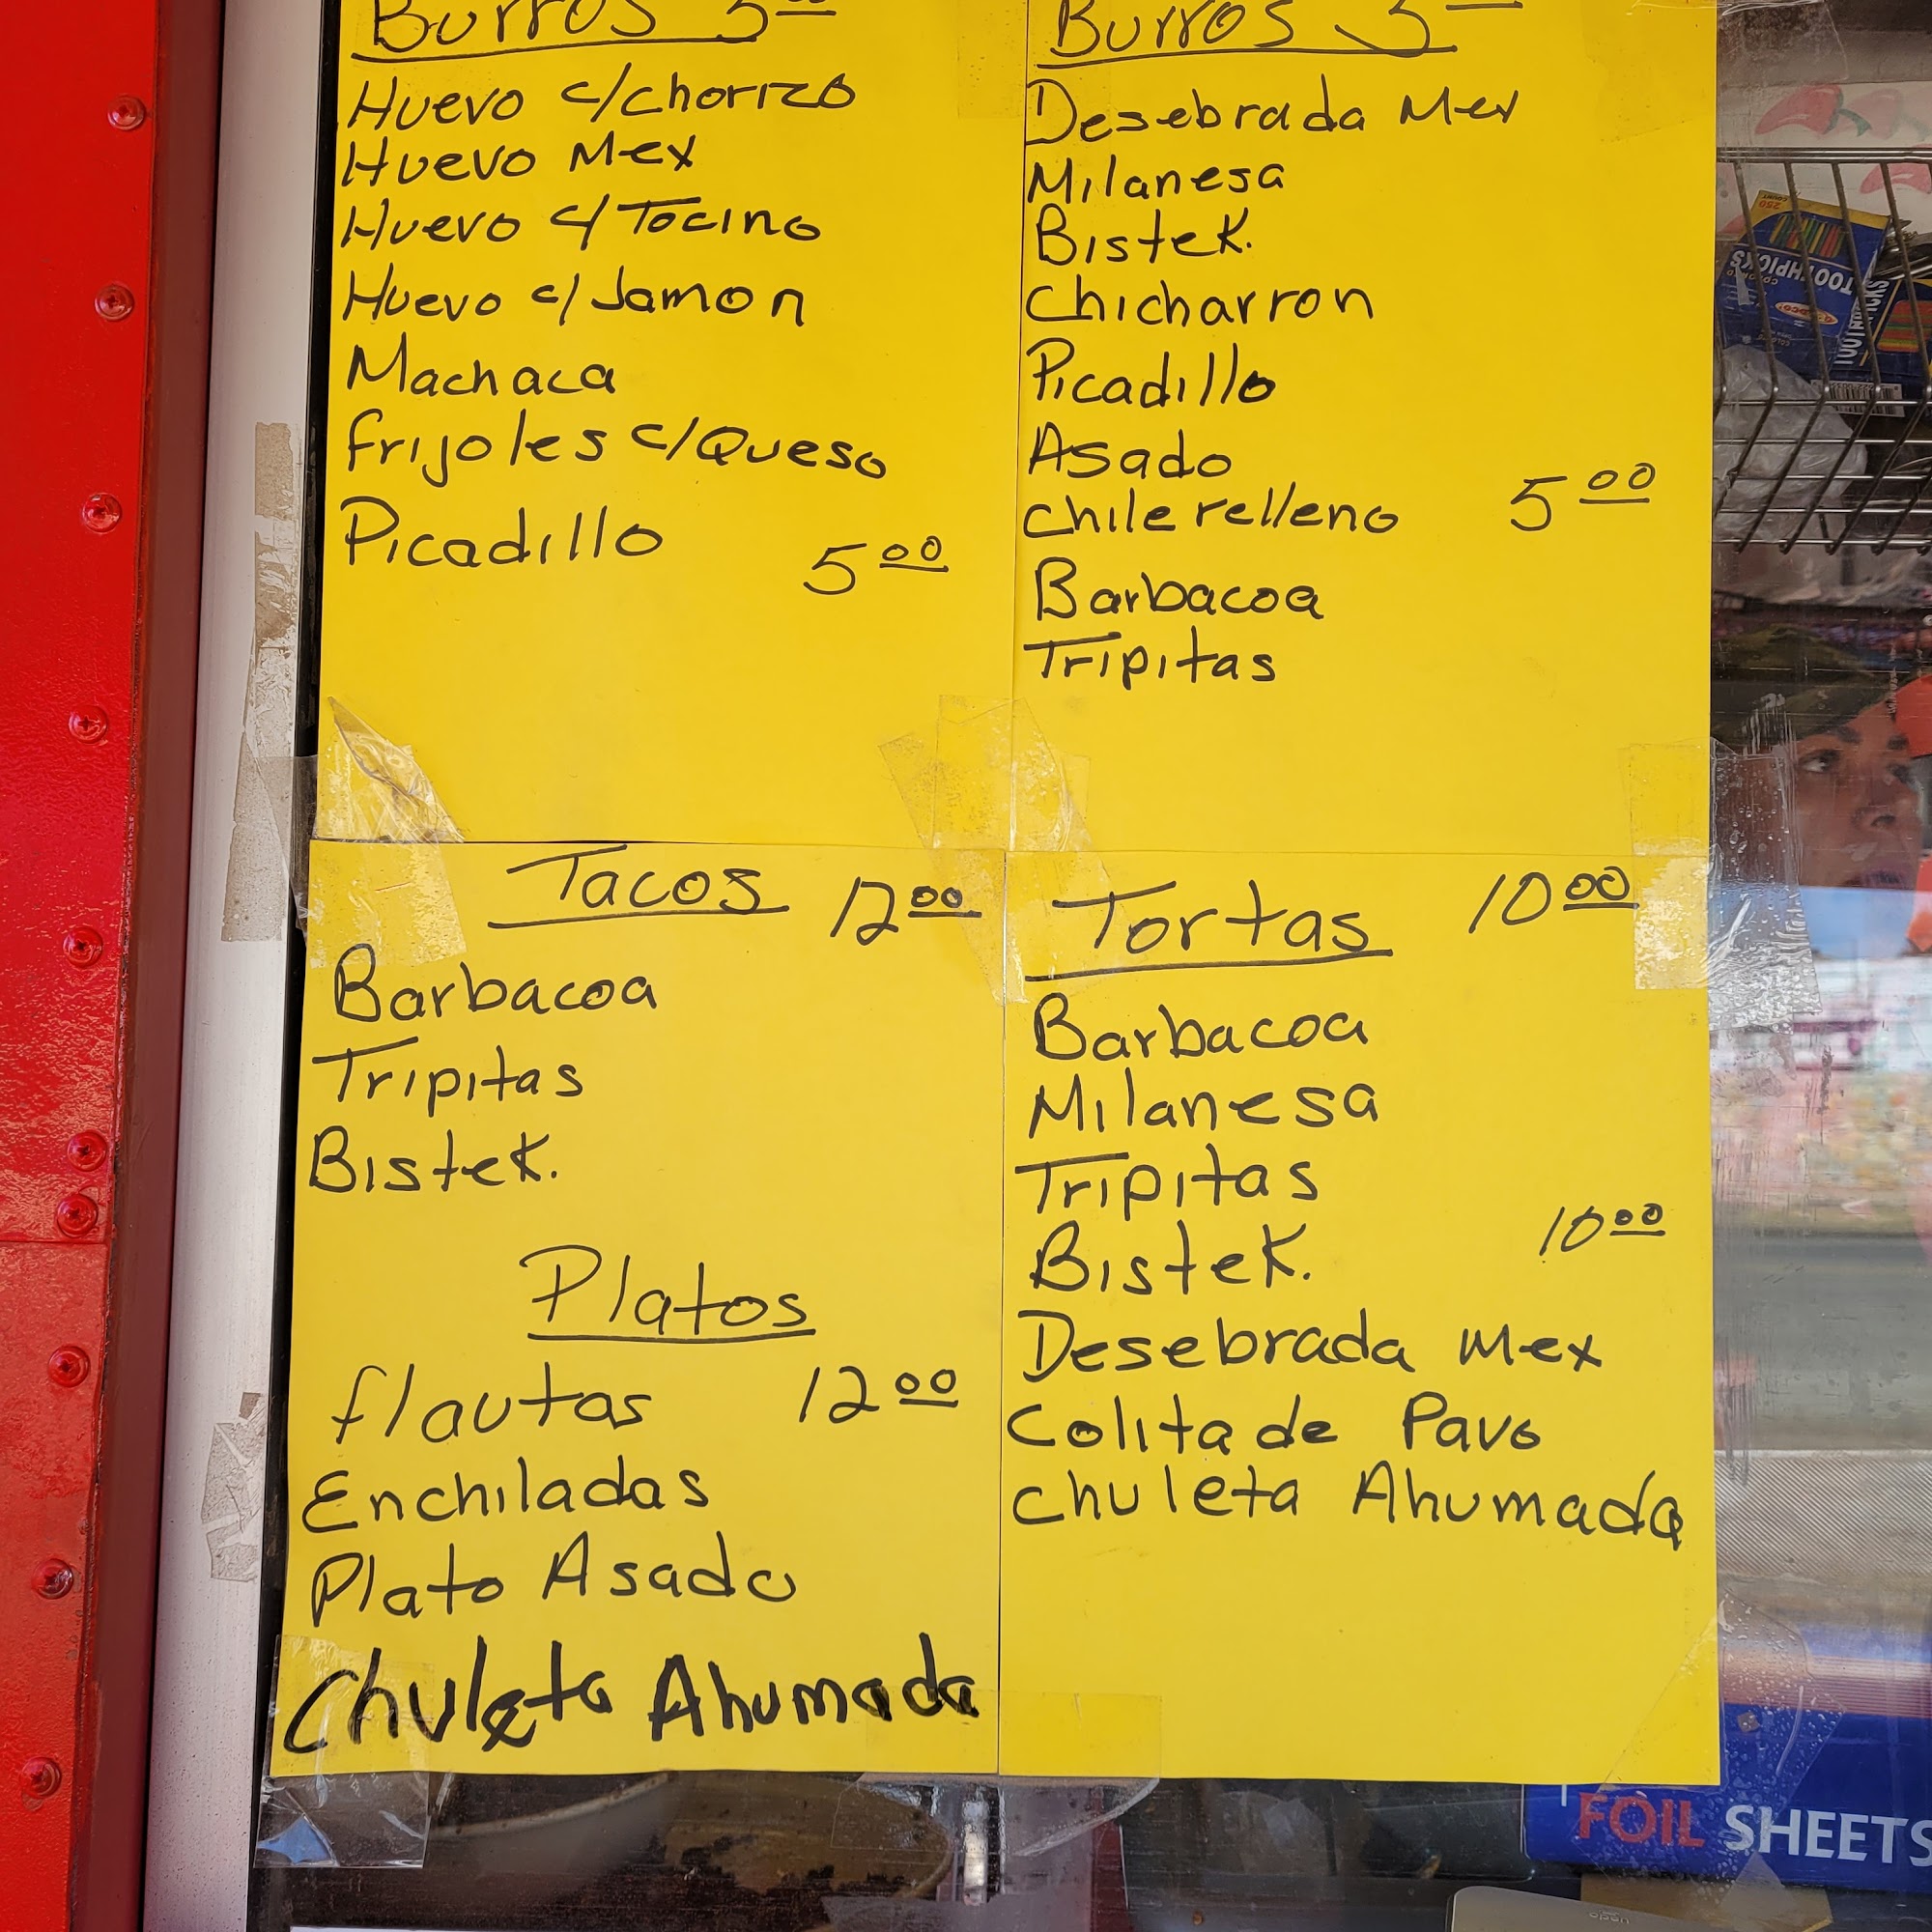 Burros 5 00
Huevo c/chorizo
Huevo Mex
Huevo c/Tocino
Huevo c/Jamon
Machaca
frijoles c/Queso
Picadillo
5 00
Burros 5
Desebrada Mex
Milanesa
Bistek.
Chicharron
Picadillo
Asado
chile relleno 5 00
Barbacoa
Tripitas
Tacos 12 00
Barbacoa
Tripitas
Bistek.
Platos
flautas 12 00
Enchiladas
Plato Asado
Chuleta Ahumada
Tortas 10 00
Barbacoa
Milanesa
Tripitas
Bistek. 10 00
Desebrada Mex
Colita de Pavo
chuleta Ahumada
250
COUNT
TOOTHPICKS
FOIL SHEETS